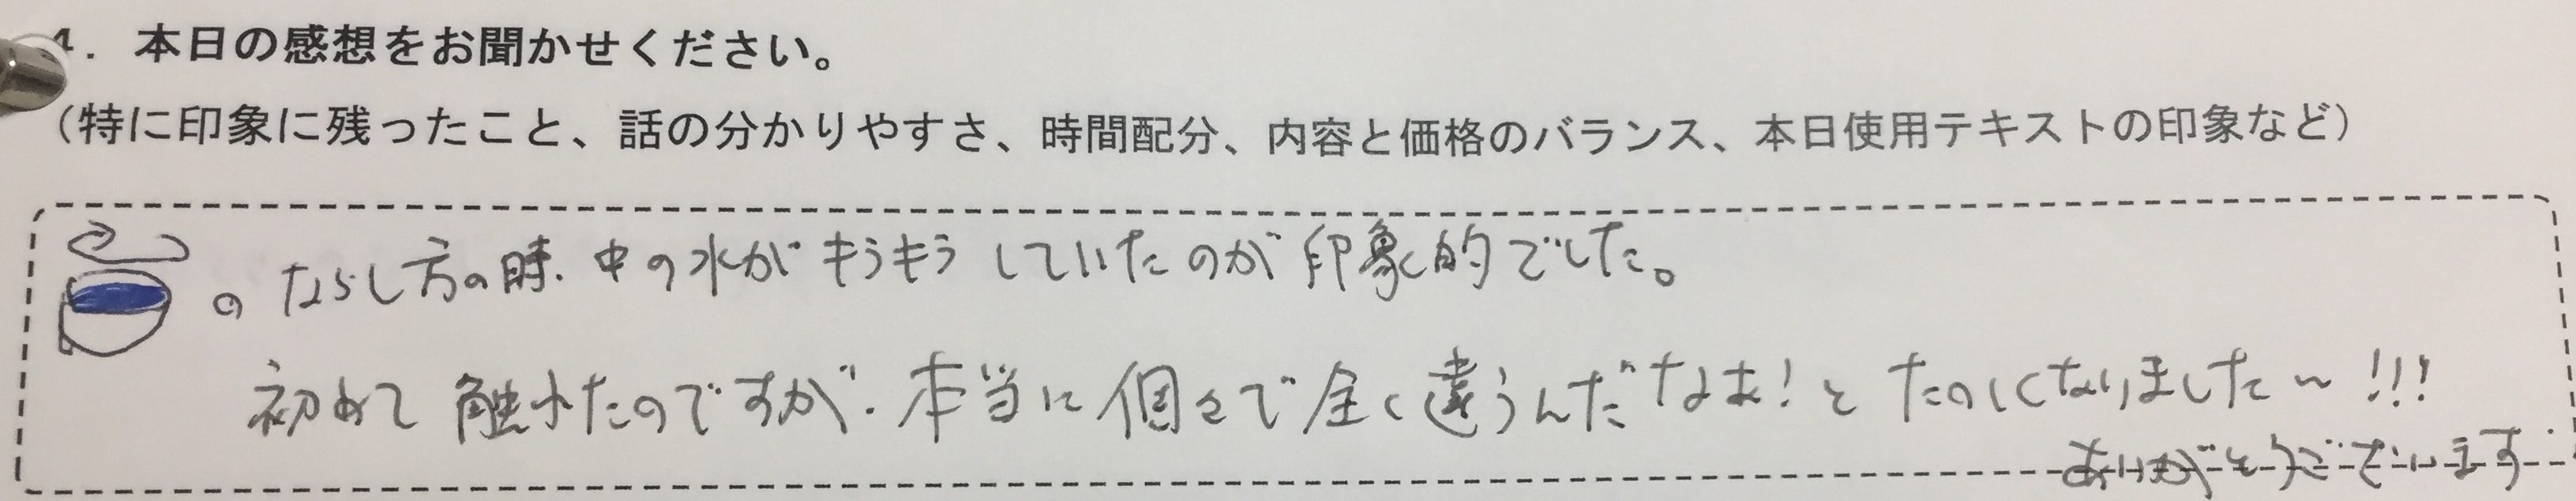 4. 本日の感想をお聞かせください。
（特に印象に残ったこと、話の分かりやすさ、時間配分、内容と価格のバランス、本日使用テキストの印象など）
のならし方の時、中の水がもうもうしていたのが印象的でした。
初めて触れたのですが、本当に個々で全く違うんだなぁ!とたのしくなりました〜!!!
ありがとうございます